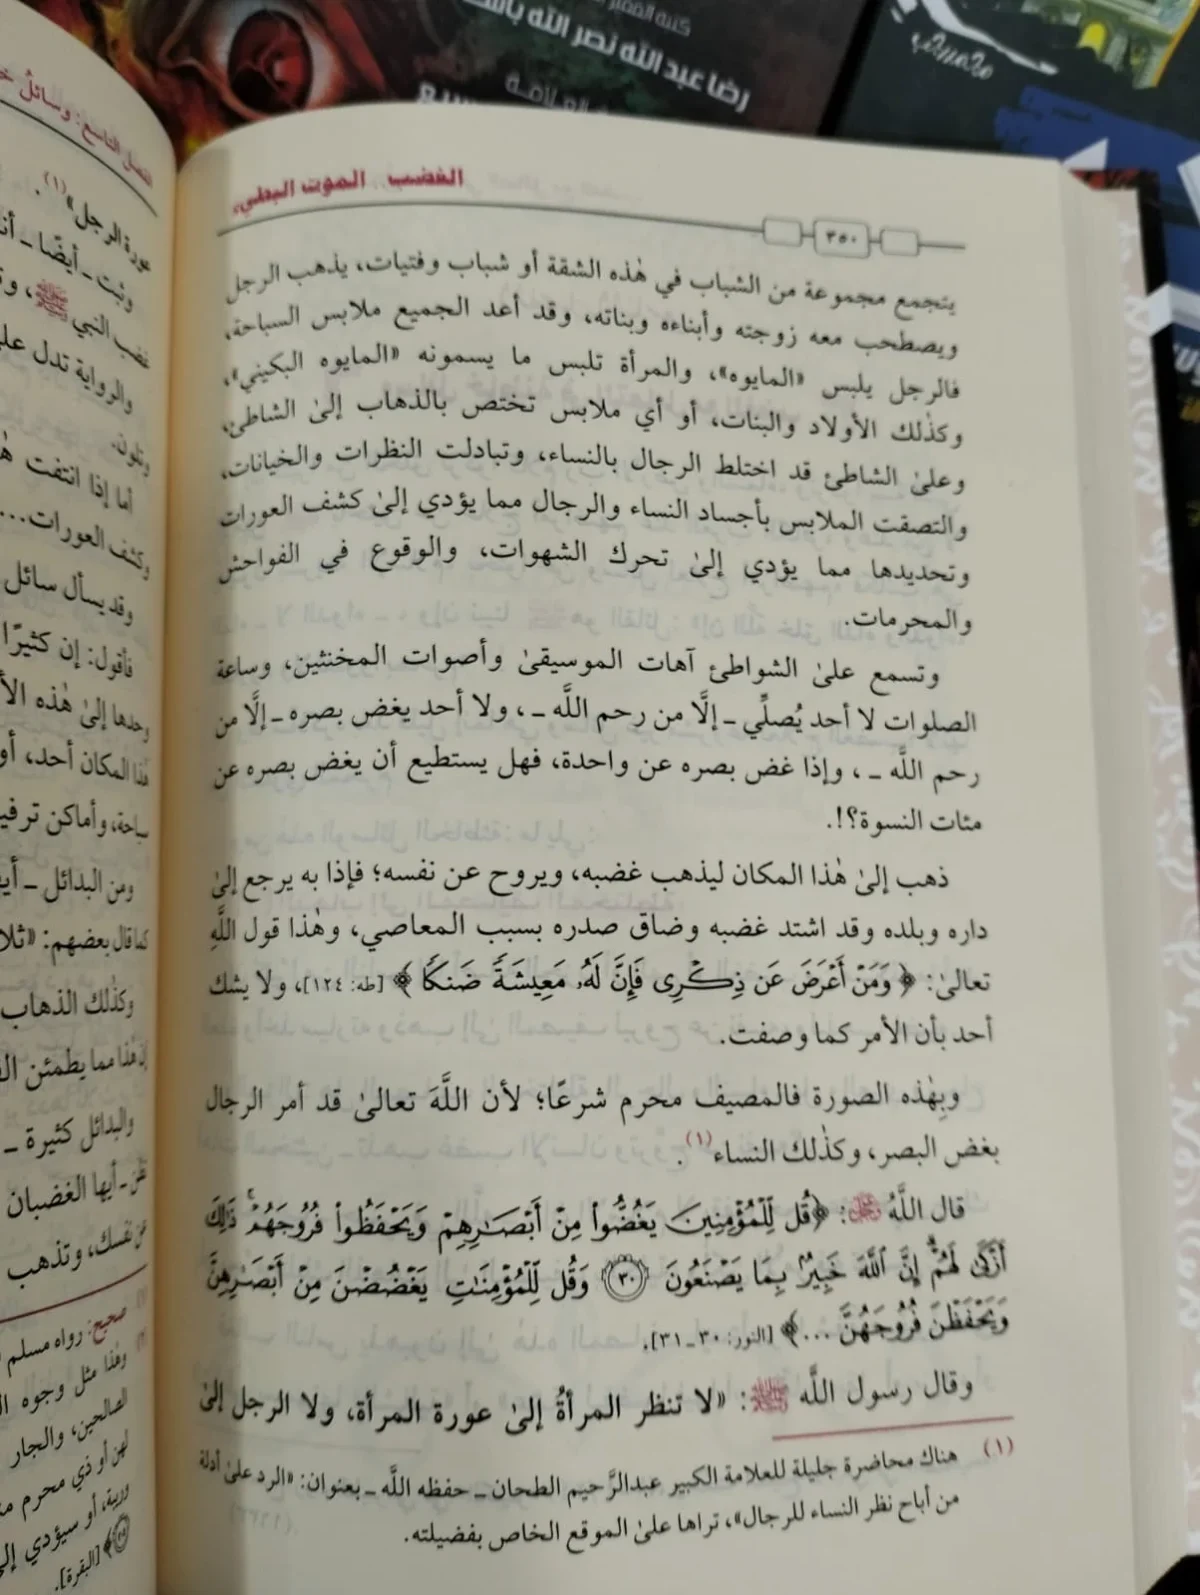 كتبه الفقير
رضا عبد الله نصر الله
العلامة
الغضب الموت البطيء
٣٥٠
يتجمع مجموعة من الشباب في هٰذه الشقة أو شباب وفتيات، يذهب الرجل
ويصطحب معه زوجته وأبناءه وبناته، وقد أعد الجميع ملابس السباحة،
فالرجل يلبس «المايوه»، والمرأة تلبس ما يسمونه «المايوه البكيني»،
وكذٰلك الأولاد والبنات، أو أي ملابس تختص بالذهاب إلىٰ الشاطئ،
وعلىٰ الشاطئ قد اختلط الرجال بالنساء، وتبادلت النظرات والخيانات،
والتصقت الملابس بأجساد النساء والرجال مما يؤدي إلىٰ كشف العورات
وتحديدها مما يؤدي إلىٰ تحرك الشهوات، والوقوع في الفواحش
والمحرمات.
وتسمع علىٰ الشواطئ آهات الموسيقىٰ وأصوات المخنثين، وساعة
الصلوات لا أحد يُصلِّي ـ إلَّا من رحم اللَّه ـ، ولا أحد يغض بصره ـ إلَّا من
رحم اللَّه ـ، وإذا غض بصره عن واحدة، فهل يستطيع أن يغض بصره عن
مئات النسوة؟!.
ذهب إلىٰ هٰذا المكان ليذهب غضبه، ويروح عن نفسه؛ فإذا به يرجع إلىٰ
داره وبلده وقد اشتد غضبه وضاق صدره بسبب المعاصي، وهٰذا قول اللَّهِ
تعالىٰ: ﴿وَمَنْ أَعْرَضَ عَن ذِكْرِى فَإِنَّ لَهُۥ مَعِيشَةً ضَنكًا﴾ [طه: ١٢٤]، ولا يشك
أحد بأن الأمر كما وصفت.
وبِهٰذه الصورة فالمصيف محرم شرعًا؛ لأن اللَّهَ تعالىٰ قد أمر الرجال
بغض البصر، وكذٰلك النساء(١).
قال اللَّهُ ﷻ: ﴿قُل لِّلْمُؤْمِنِينَ يَغُضُّوا۟ مِنْ أَبْصَـٰرِهِمْ وَيَحْفَظُوا۟ فُرُوجَهُمْ ۚ ذَٰلِكَ
أَزْكَىٰ لَهُمْ ۗ إِنَّ ٱللَّهَ خَبِيرٌۢ بِمَا يَصْنَعُونَ ۝٣٠ وَقُل لِّلْمُؤْمِنَـٰتِ يَغْضُضْنَ مِنْ أَبْصَـٰرِهِنَّ
وَيَحْفَظْنَ فُرُوجَهُنَّ ...﴾ [النور: ٣٠ـ٣١].
وقال رسول اللَّه ﷺ: «لا تنظر المرأةُ إلىٰ عورة المرأة، ولا الرجل إلىٰ
(١) هناك محاضرة جليلة للعلامة الكبير عبدالرَّحيم الطحان ـ حفظه اللَّه ـ بعنوان: «الرد علىٰ أدلة
من أباح نظر النساء للرجال»، تراها علىٰ الموقع الخاص بفضيلته.
الفصل التاسع: وسائل
عورة الرجل»(١).
وثبت ـ أيضًا ـ
غضب النبي ﷺ،
والرواية تدل
وتلون.
أما إذا انتفت
وكشف العورات...
وقد يسأل سائل
فأقول: إن كثيرًا
وحدها إلىٰ هٰذه
هٰذا المكان أحد، أو
سباحة، وأماكن
ومن البدائل ـ
كما قال بعضهم:
وكذٰلك الذهاب
إن هٰذا مما يطمئن
والبدائل كثيرة ـ
ـ أيها الغضبان
عن نفسك، وتذهب
صحيح: رواه مسلم
وهٰذا مثل وجوه
الصالحين، والجار
لهن أو ذي محرم
أو سيؤدي
[البقرة].